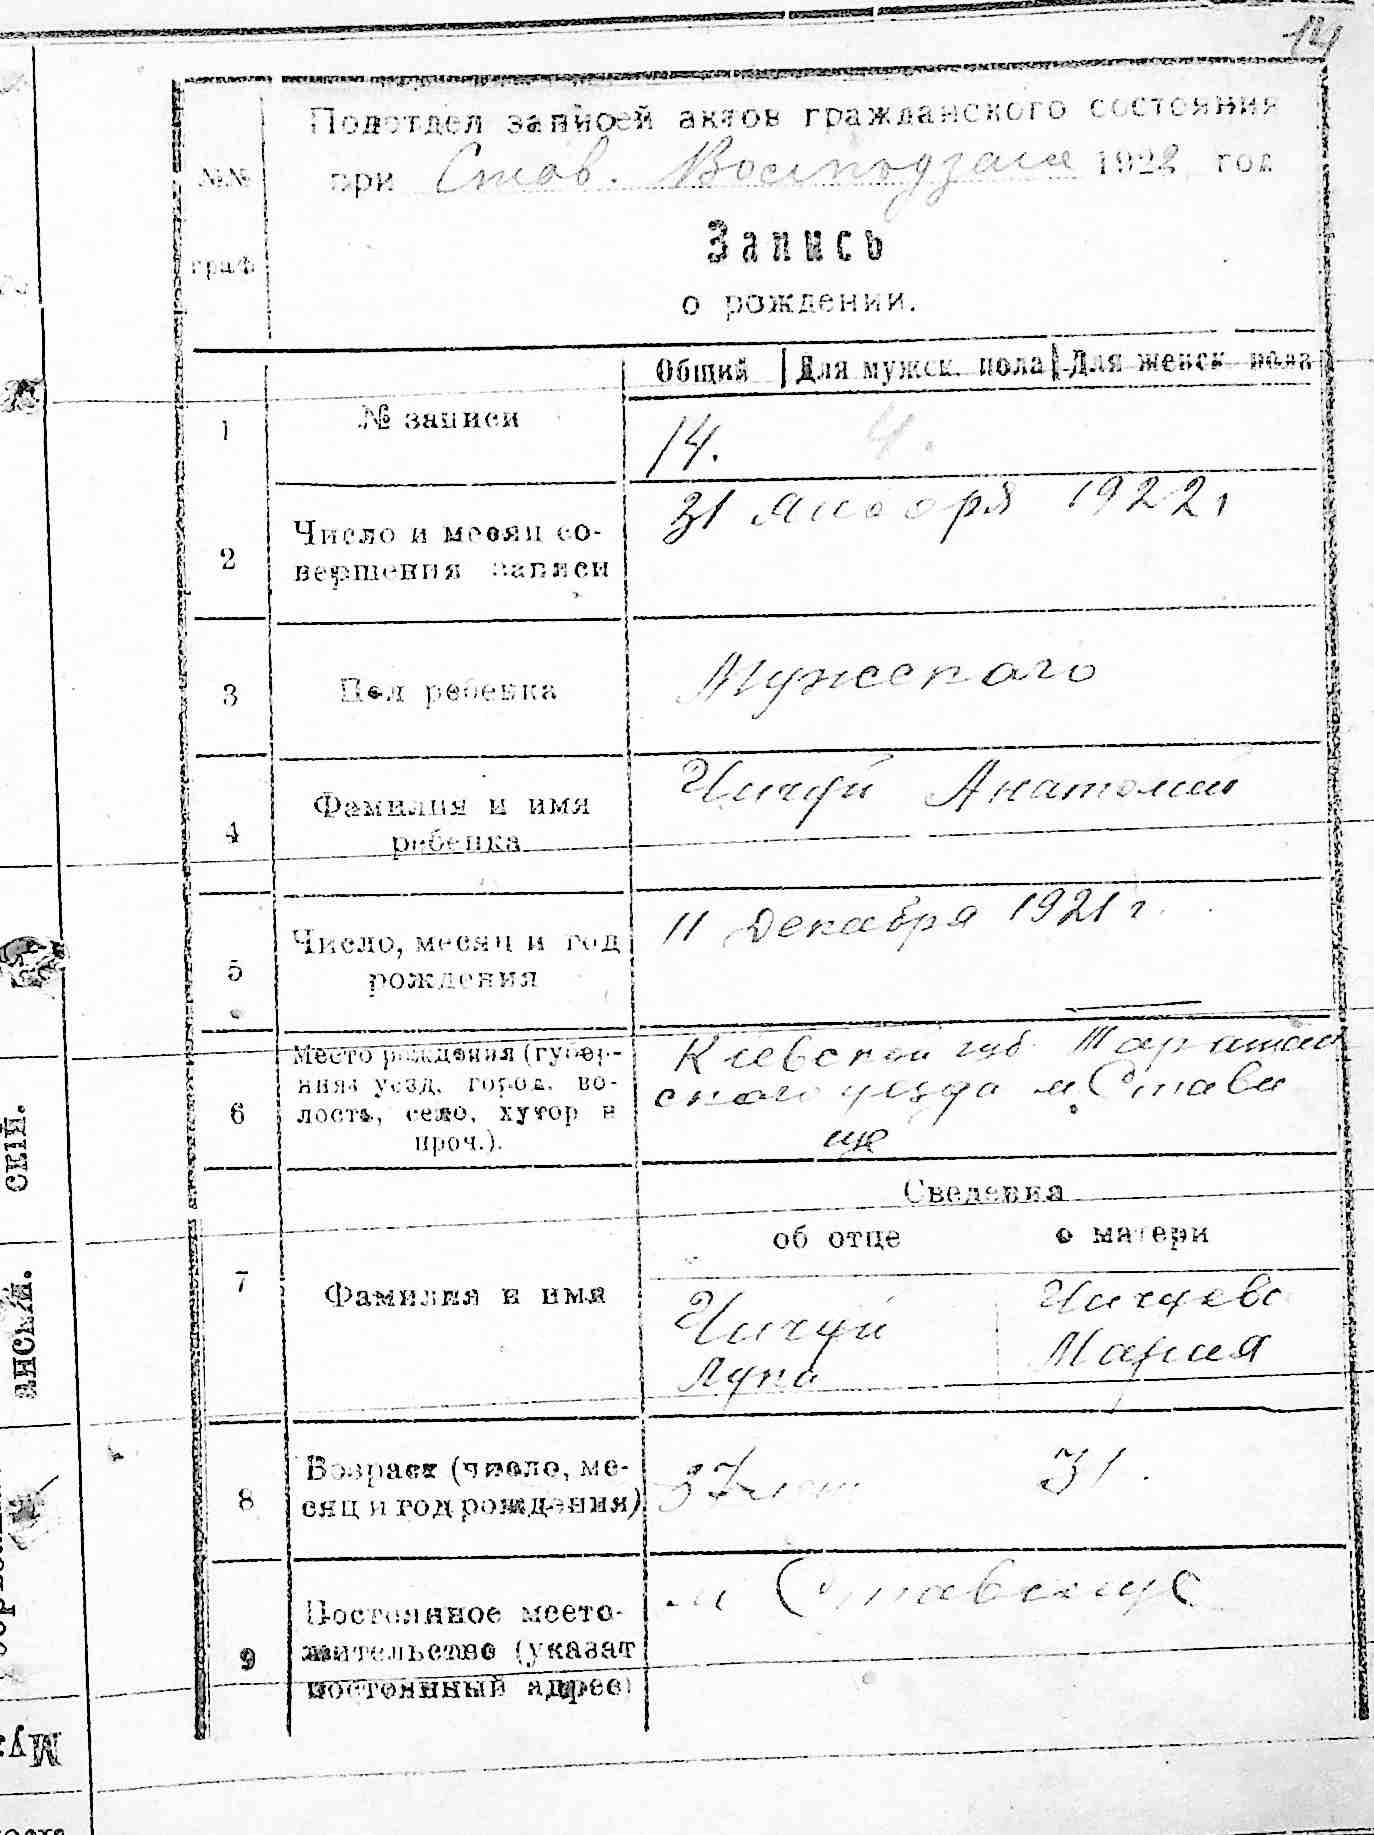 14
Подотдел записей актов гражданского состояния
при Став. 1922 год
№№
граф
Запись
о рождении.
Общий Для мужск. пола Для женск пола
1 № записи
14. 4.
2 Число и месяц со-
вершения записи
31 января 1922г
3 Пол ребенка
Мужеского
4 Фамилия и имя
ребенка
Чичуй Анатолий
5 Число, месяц и год
рождения
11 Декабря 1921 г.
6 Место рождения (губер-
ния, уезд, город, во-
лость, село, хутор и
проч.).
Киевской губ Таращан
ского уезда м. Стави
ще
Сведения
об отце о матери
7 Фамилия и имя
Чичуй
Лука
Чичуева
Мария
8 Возраст (число, ме-
сяц и год рождения)
37 лет 31.
9 Постоянное место-
жительство (указат
постоянный адрес)
м Ставище
ский.
анский.
Муж